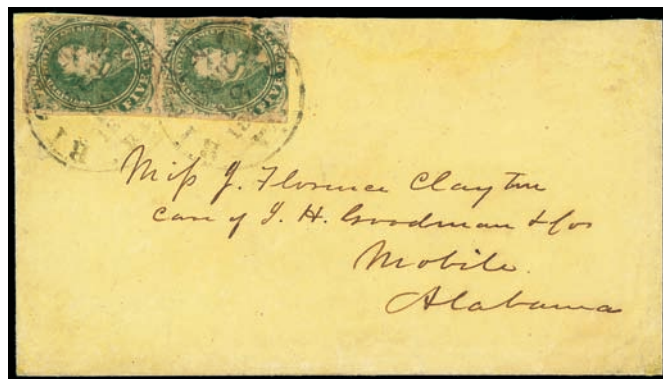 Miss J. Florence Clayton
care of J. H. Goodman & Co
Mobile.
Alabama